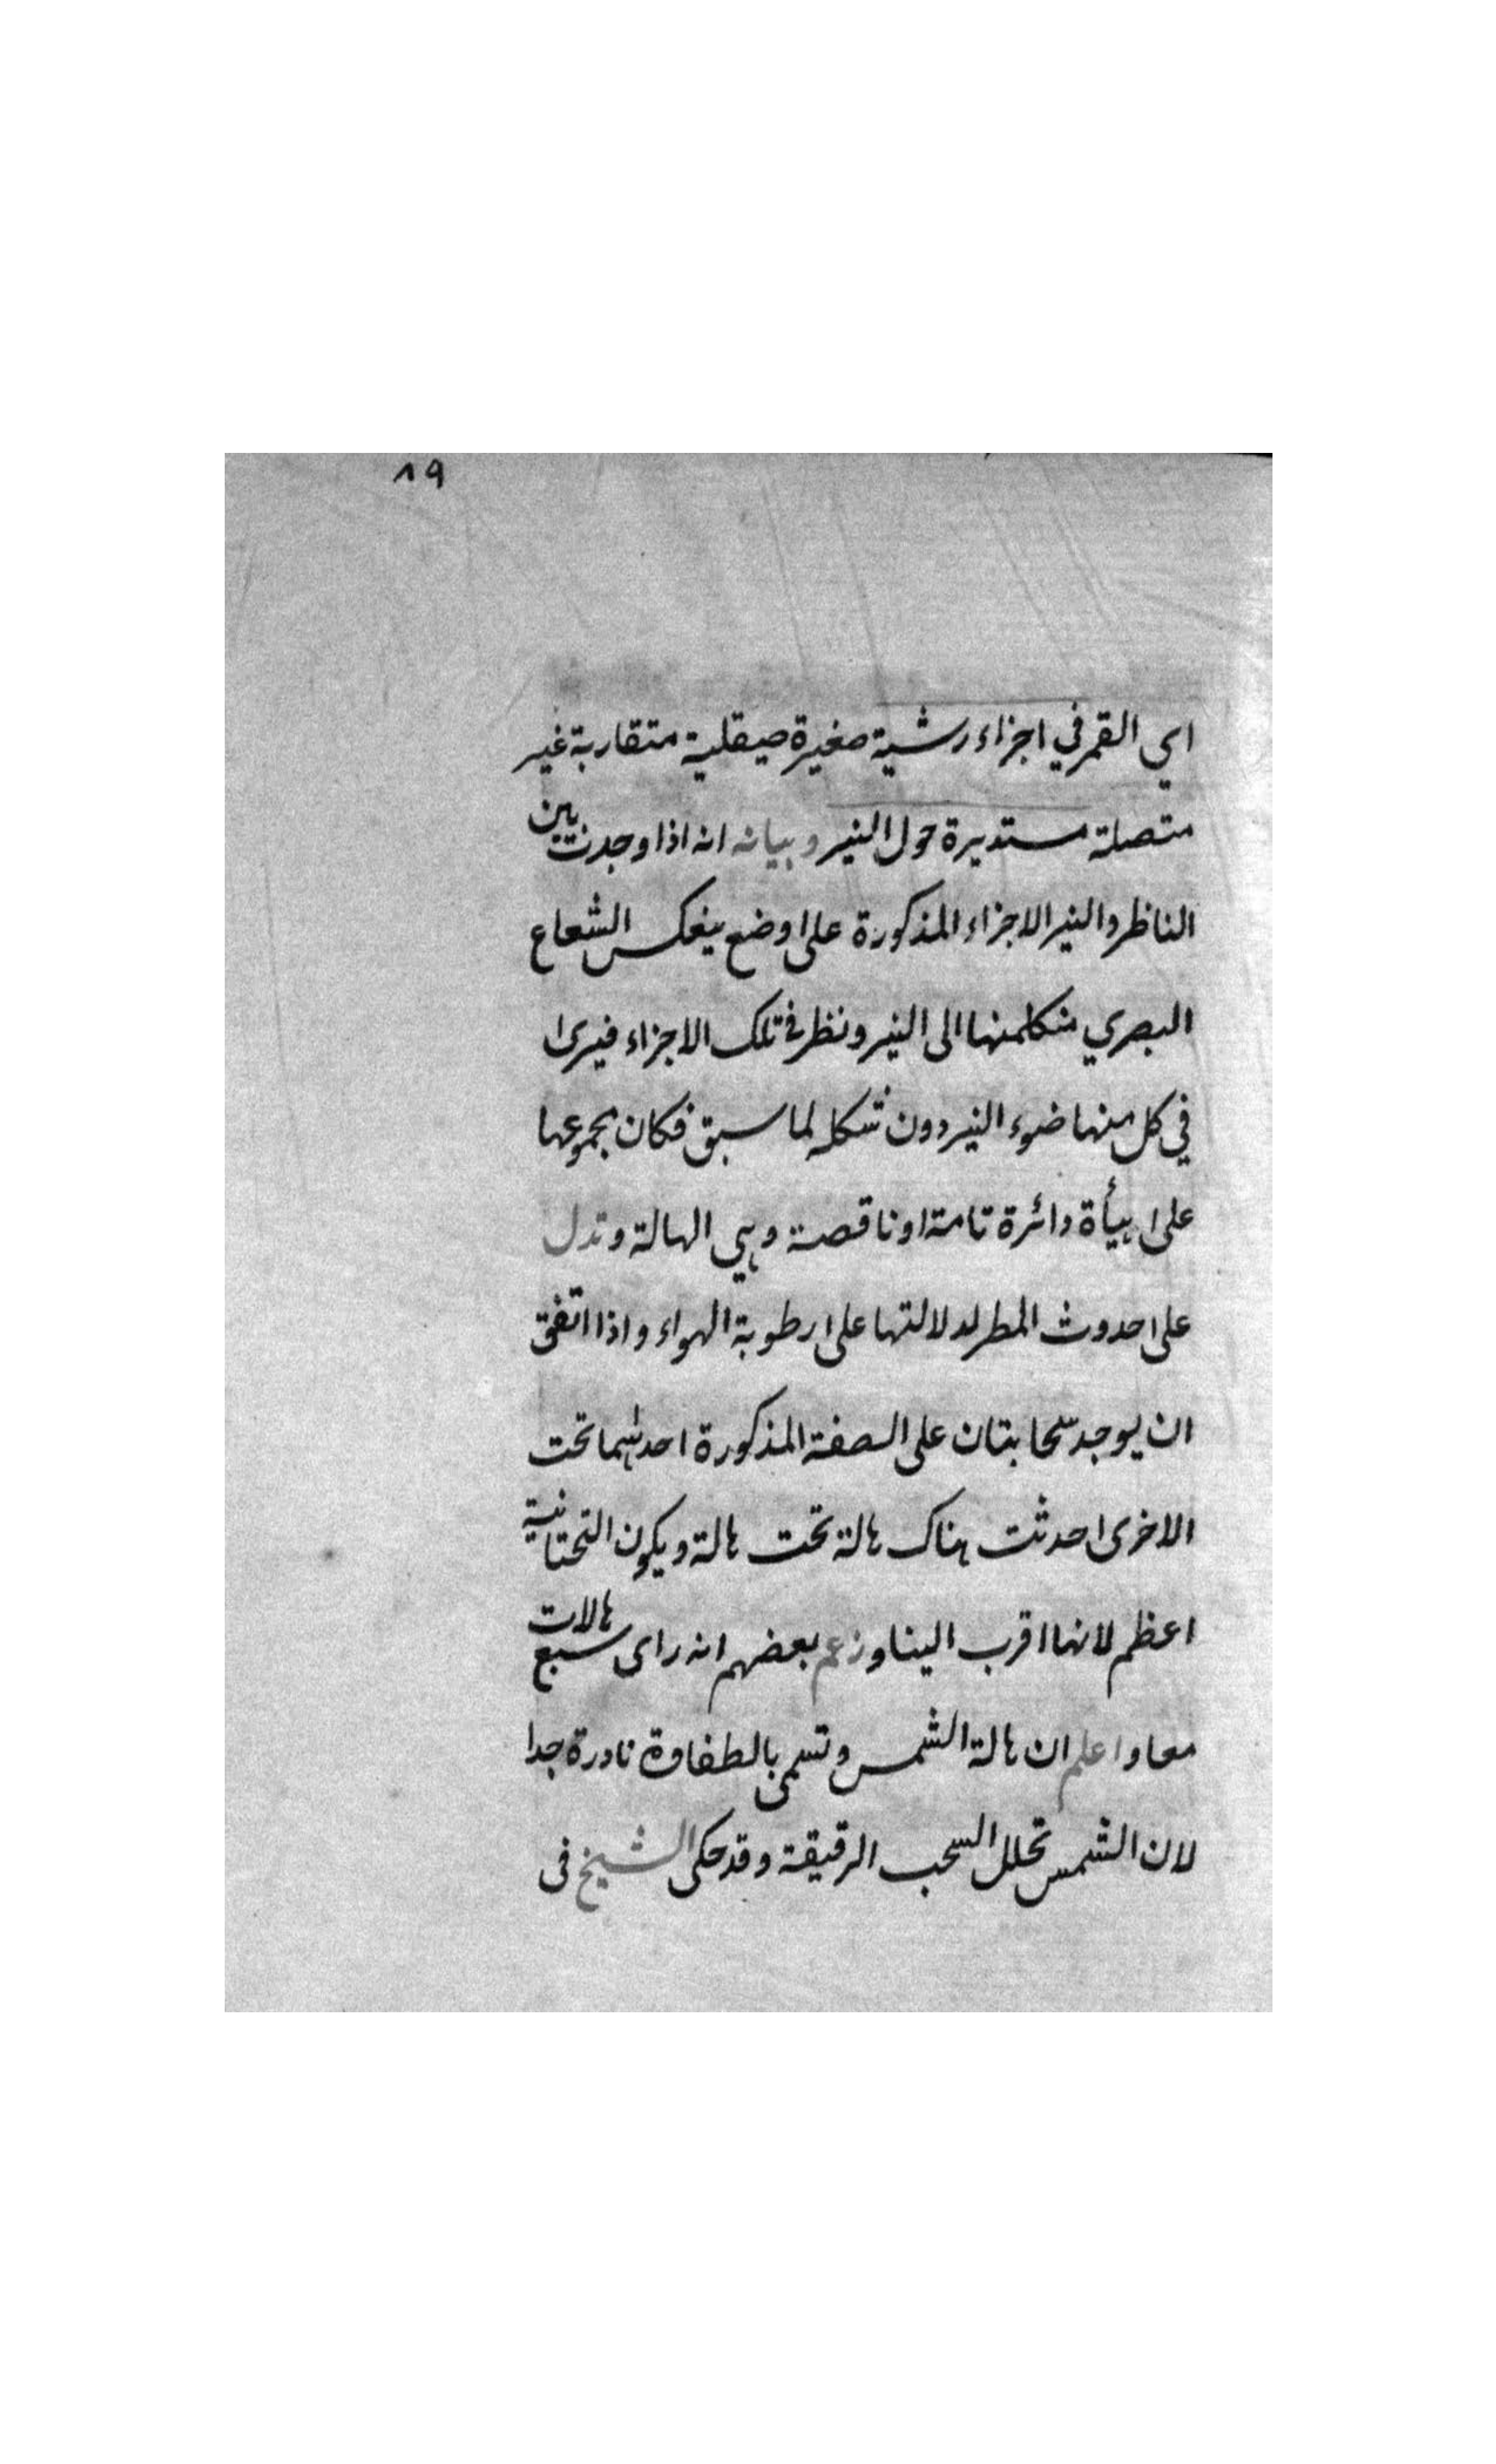 ٨٩
اي القمر في اجزاء رشية صغيرة صيقلية متقاربة غير
متصلة مستديرة حول النير وبيانه انه اذا وجدت بين
الناظر والنير الاجزاء المذكورة على وضع ينعكس الشعاع
البصري من كل منها الى النير ونظر في تلك الاجزاء فيرى
في كل منها ضوء النير دون شكله لما سبق فكان مجموعها
على هيأة دائرة تامة او ناقصة وهي الهالة وتدل
على حدوث المطر لدلالتها على رطوبة الهواء واذا اتفق
ان يوجد سحابتان على الصفة المذكورة احدٰهما تحت
الاخرى حدثت هناك هالة تحت هالة ويكون التحتانية
اعظم لانها اقرب الينا وزعم بعضهم انه راى سبع هالات
معا واعلم ان هالة الشمس وتسمى بالطفاوة نادرة جدا
لان الشمس تحلل السحب الرقيقة وقد حكى الشيخ فى